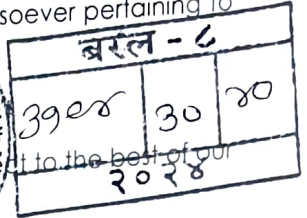 soever pertaining to
बरल - ८
३१९४ ३० ४०
t to the best of our
२०२४